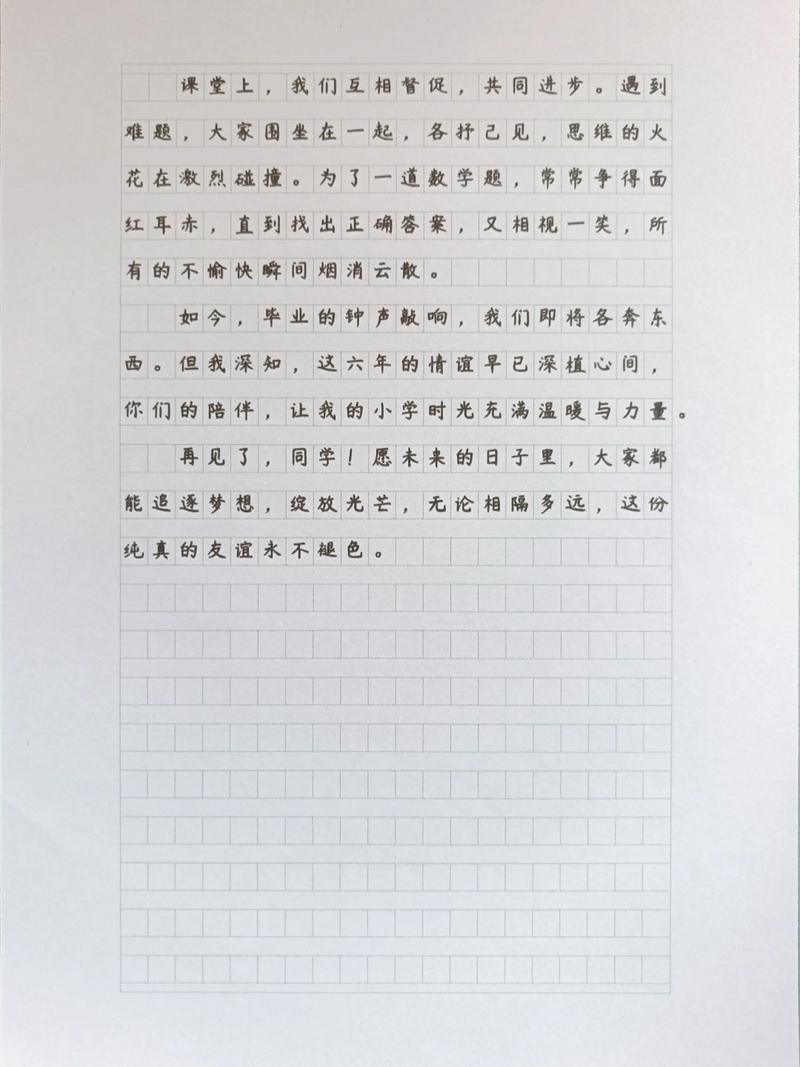 课堂上，我们互相督促，共同进步。遇到
难题，大家围坐在一起，各抒己见，思维的火
花在激烈碰撞。为了一道数学题，常常争得面
红耳赤，直到找出正确答案，又相视一笑，所
有的不愉快瞬间烟消云散。
如今，毕业的钟声敲响，我们即将各奔东
西。但我深知，这六年的情谊早已深植心间，
你们的陪伴，让我的小学时光充满温暖与力量。
再见了，同学！愿未来的日子里，大家都
能追逐梦想，绽放光芒，无论相隔多远，这份
纯真的友谊永不褪色。